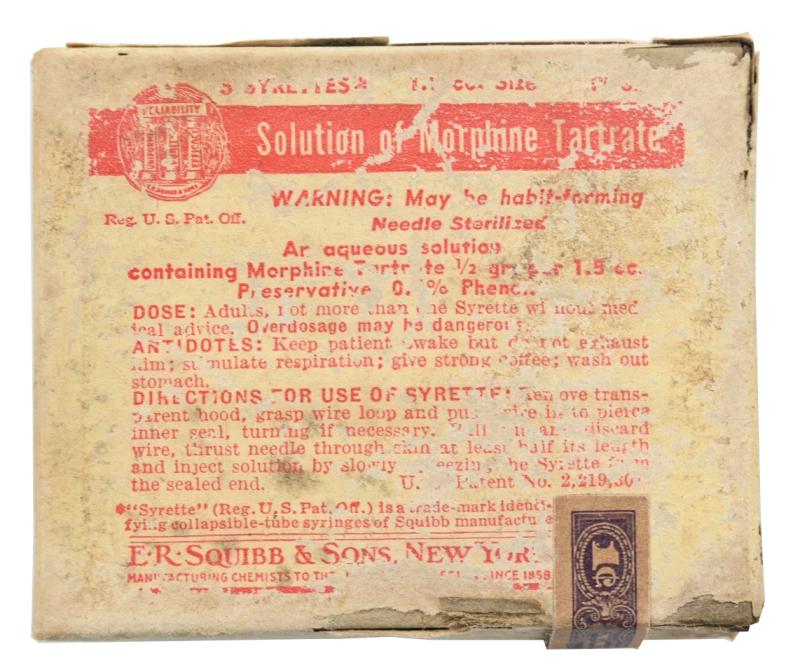 5 SYRETTES* 1.5 cc. Size
RELIABILITY
UNIFORMITY PURITY EFFICACY
E.R. SQUIBB & SONS
Solution of Morphine Tartrate
WARNING: May be habit-forming
Reg. U. S. Pat. Off.
Needle Sterilized
An aqueous solution
containing Morphine Tartrate ½ gr. per 1.5 cc.
Preservative 0. % Phenol
DOSE: Adults, not more than one Syrette without med-
ical advice. Overdosage may be dangerous.
ANTIDOTES: Keep patient awake but do not exhaust
him; stimulate respiration; give strong coffee; wash out
stomach.
DIRECTIONS FOR USE OF SYRETTE: Remove trans-
parent hood, grasp wire loop and push wire in to pierce
inner seal, turning if necessary. Pull out and discard
wire, thrust needle through skin at least half its length
and inject solution by slowly squeezing the Syrette from
the sealed end. U. S. Patent No. 2,219,30
*"Syrette" (Reg. U. S. Pat. Off.) is a trade-mark identi-
fying collapsible-tube syringes of Squibb manufacture
E·R·SQUIBB & SONS, NEW YORK
MANUFACTURING CHEMISTS TO THE SINCE 1858